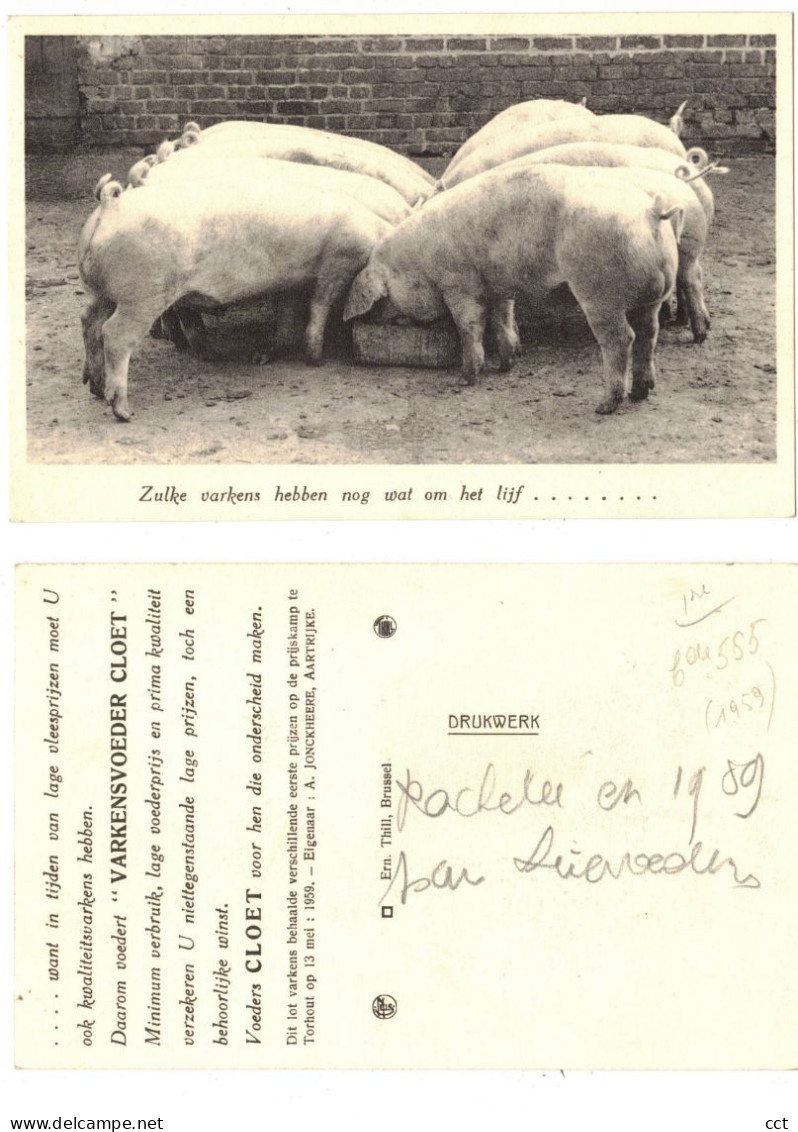 Zulke varkens hebben nog wat om het lijf . . . . . . . . .
. . . . want in tijden van lage vleesprijzen moet U
ook kwaliteitsvarkens hebben.
Daarom voedert “ VARKENSVOEDER CLOET ”
Minimum verbruik, lage voederprijs en prima kwaliteit
verzekeren U niettegenstaande lage prijzen, toch een
behoorlijke winst.
Voeders CLOET voor hen die onderscheid maken.
Dit lot varkens behaalde verschillende eerste prijzen op de prijskamp te
Torhout op 13 mei : 1959. — Eigenaar : A. JONCKHEERE, AARTRIJKE.
Ern. Thill, Brussel
DRUKWERK
555
(1959)
en 1989
© DELCAMPE
cct